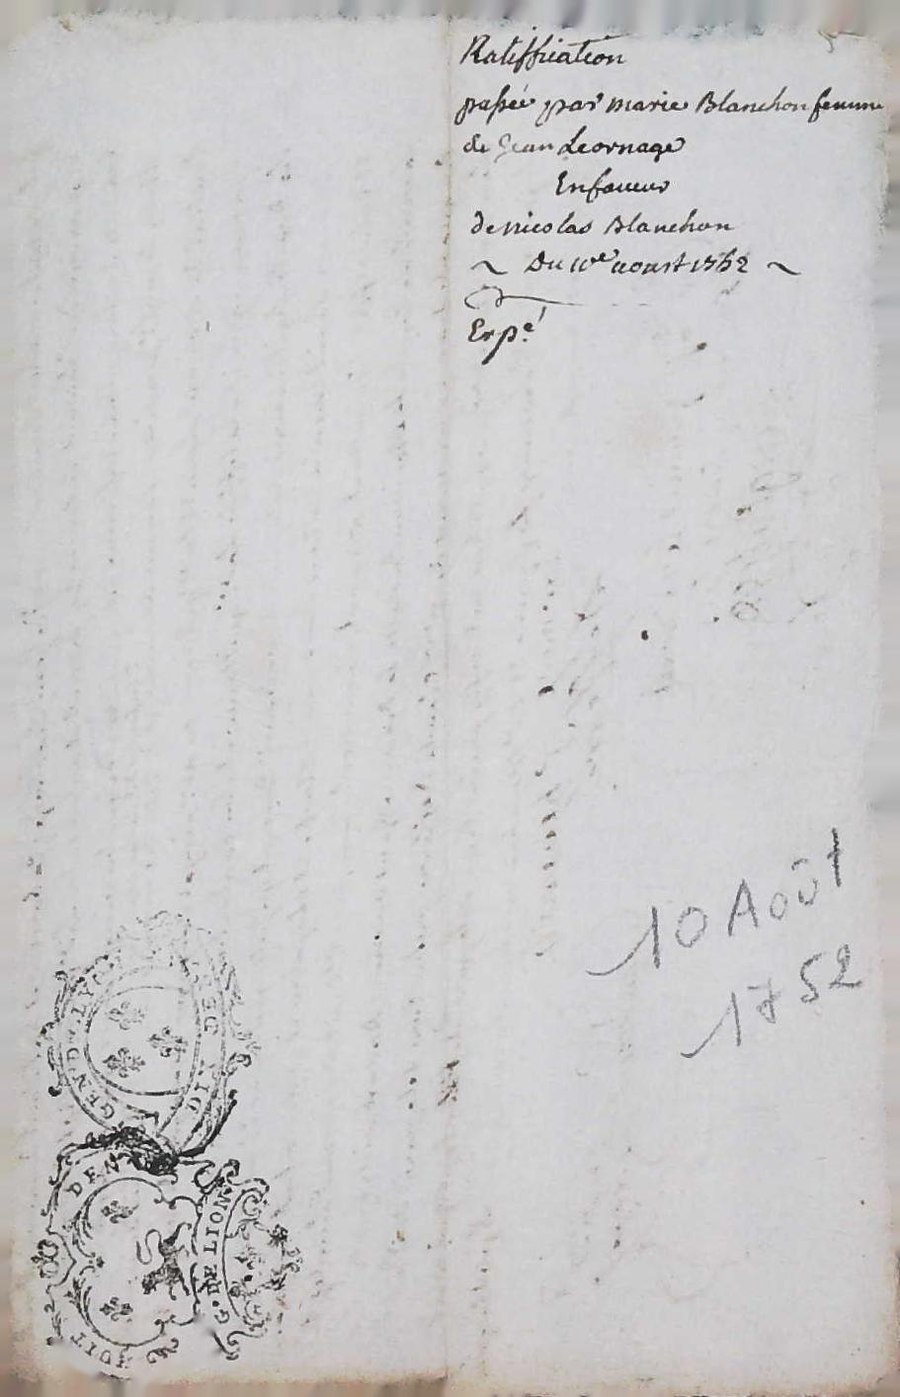 Ratiffication
passée par marie Blanchon femme
de Jean Leornage
Enfaveur
de nicolas Blanchon
~ Du 10e aoust 1752 ~
Expé
10 Août
1752
GEN D LY
DEN
G. DE LION
HUIT